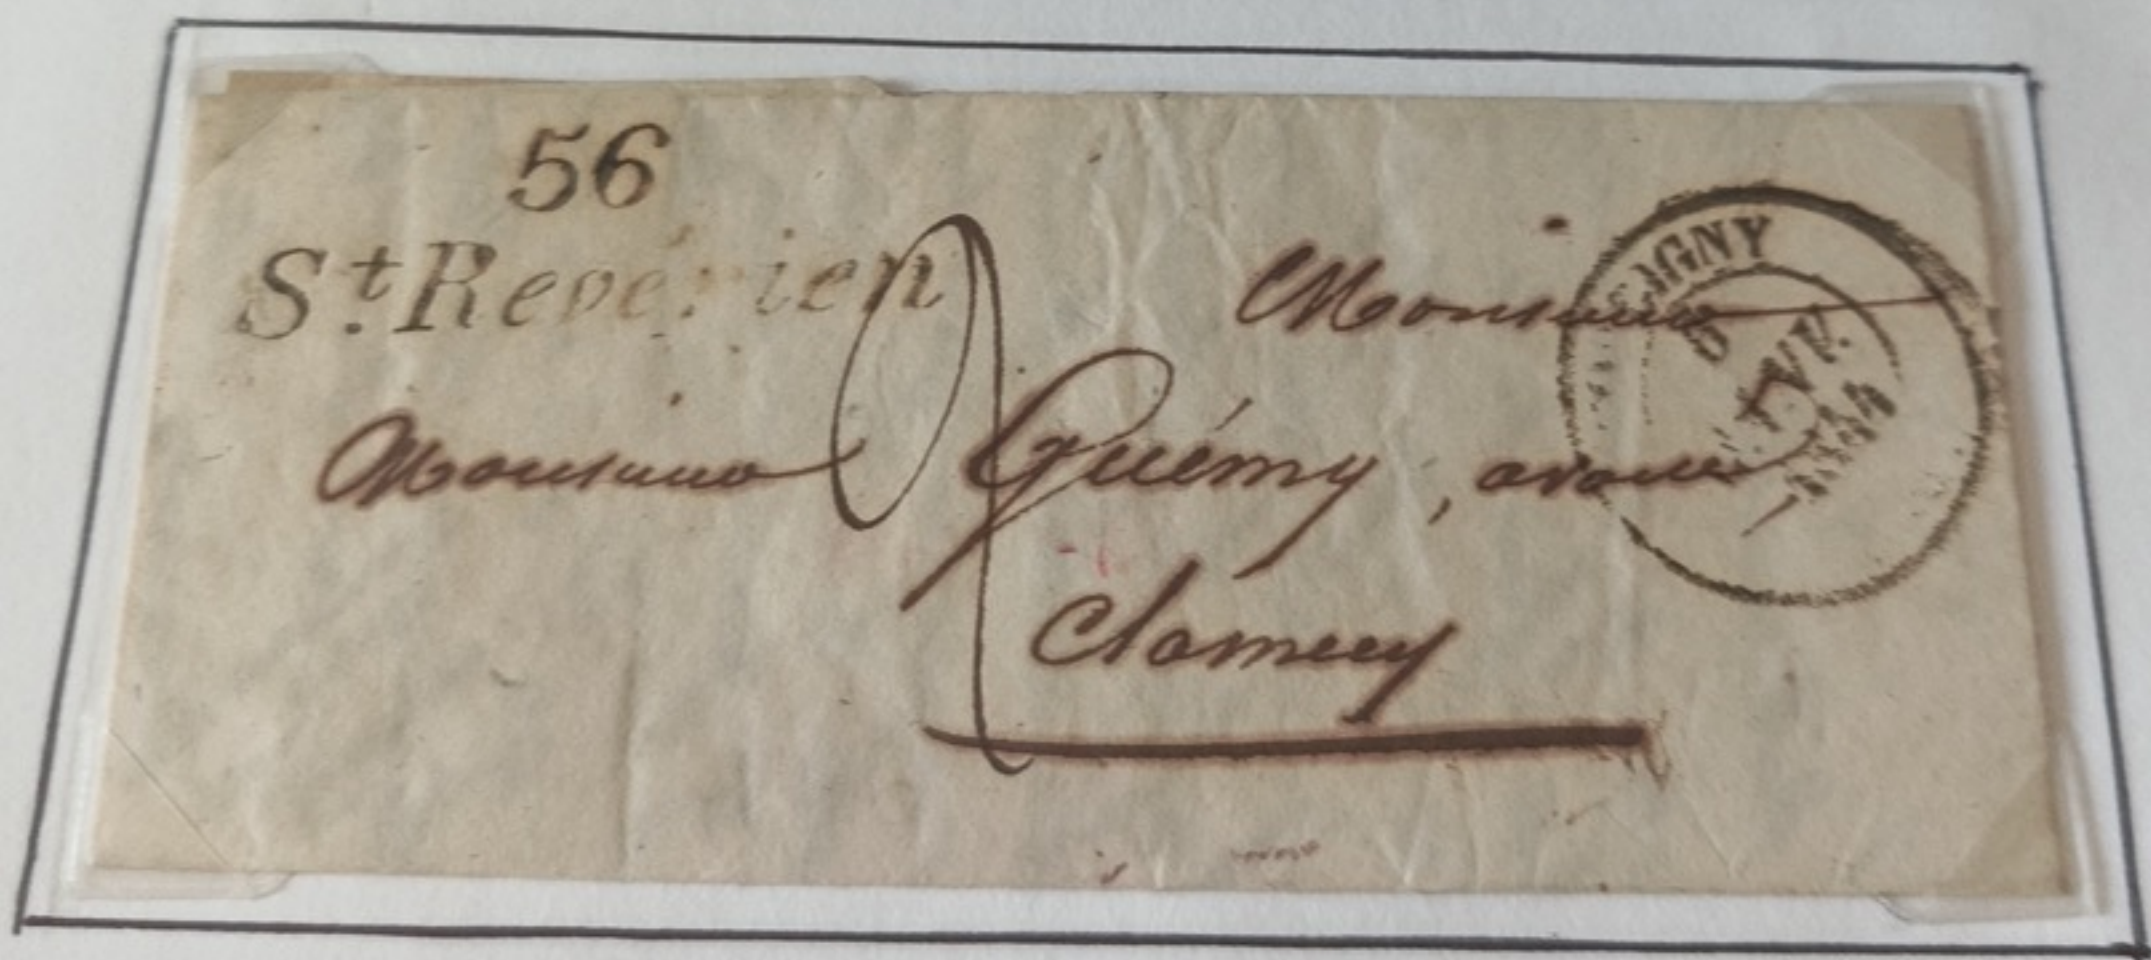 56
St. Revérien
Monsieur
Monsieur Guémy, avoué
Clamecy
2
IGNY
5
1844